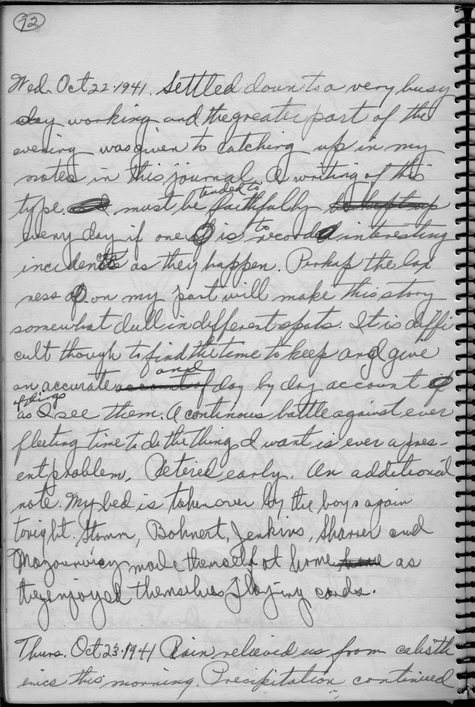 92
Wed. Oct 22-1941. Settled down to a very busy
day working and the greater part of the
evening was given to catching up in my
notes in this journal. A writing of this
type must be tended to faithfully
every day if one is to record interesting
incidents as they happen. Perhap the lax
ness on my part will make this story
somewhat dull in different spots. It is diffi
cult though to find the time to keep and give
an accurate and day by day account of things
as I see them. A continous battle against ever
fleeting time to do the things I want is ever a pres-
ent problem. Retired early. An additional
note. My bed is taken over by the boys again
tonight. Stomm, Bohnert, Jenkins, and
made themself at home as
they enjoyed themselves playing cards.
Thurs. Oct 23-1941 Rain relieved us from calisth
enics this morning. Precipitation continued